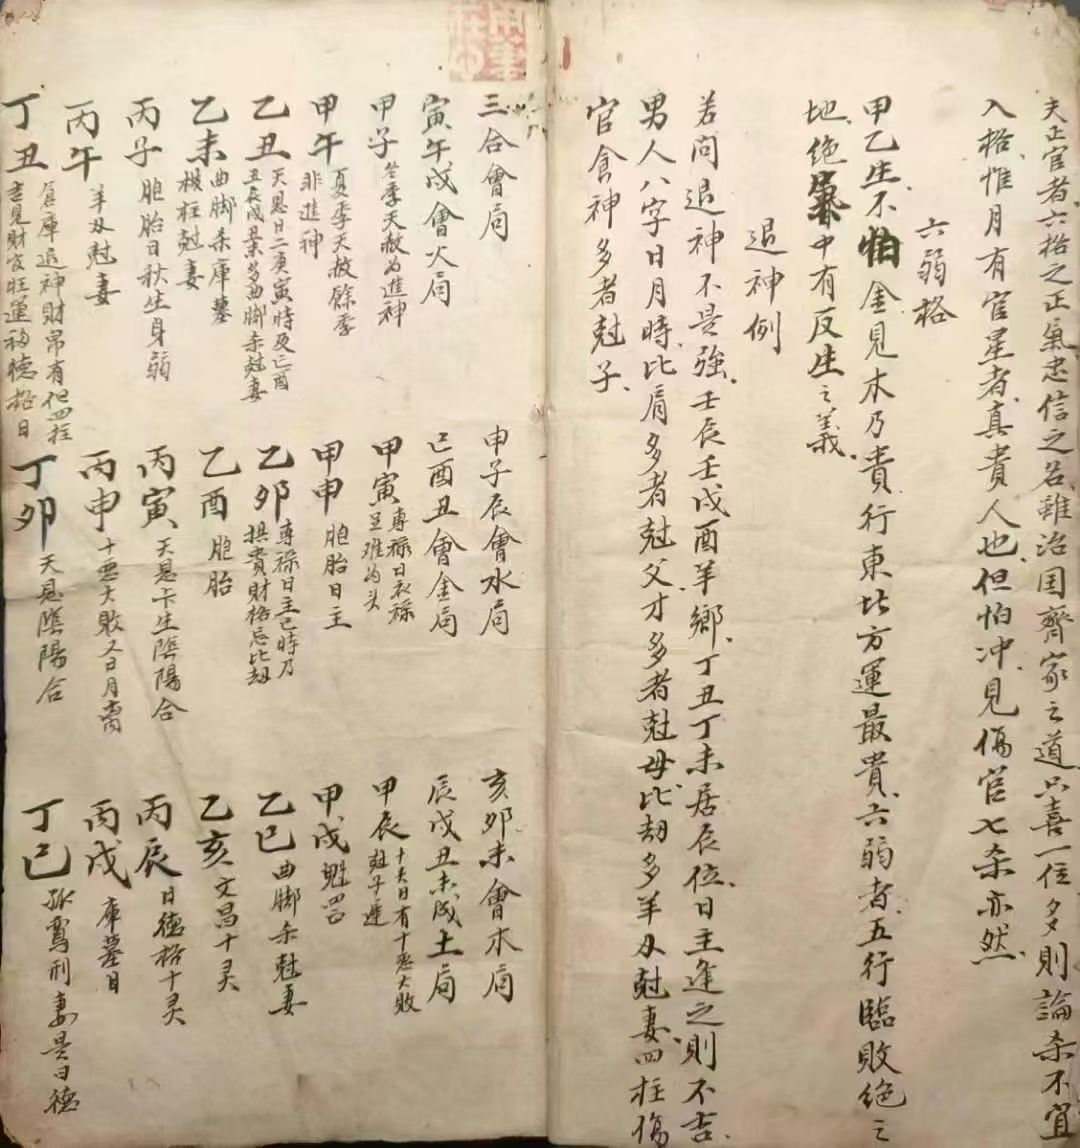 夫正官者六格之正氣忠信之名雖治国齊家之道只喜一位多則論杀不宜
入格惟月有官星者真貴人也但怕冲見傷官七杀亦然
六弱格
甲乙生不怕金見木乃貴行東北方運最貴六弱者五行臨敗絶之
地絶氣中有反生之義
退神例
若问退神不是強壬辰壬戌酉羊鄉丁丑丁未居辰位日主逢之則不吉
男人八字日月時比肩多者尅父才多者尅母比劫多羊刃尅妻四柱傷
官食神多者尅子
三合會局 申子辰會水局 亥卯未會木局
寅午戌會火局 巳酉丑會金局 辰戌丑未成土局
甲子 冬季天赦为進神
甲寅 專禄日衣禄
呈难为头
甲辰 十大日有十悪大敗
尅子遲
甲午 夏季天赦餘季
非進神
甲申 胞胎日主
甲戌 魁罡
乙丑 天恩日二庚寅時及己酉
丑辰戌杀多曲脚杀尅妻
乙卯 專禄日主已時乃
拱貴財格忌比劫
乙巳 曲脚杀尅妻
乙未 曲脚杀庫墓
板柱尅妻
乙酉 胞胎
乙亥 文昌十灵
丙子 胞胎日秋生身弱
丙寅 天恩卡生陰陽合
丙辰 日德格十灵
丙午 羊刃尅妻
丙申 十悪大敗又日月
丙戌 庫墓日
丁丑 倉庫退神財帛有但四柱
吉見財官旺運福德格日
丁卯 天恩陰陽合
丁巳 孤鸞刑妻是日德